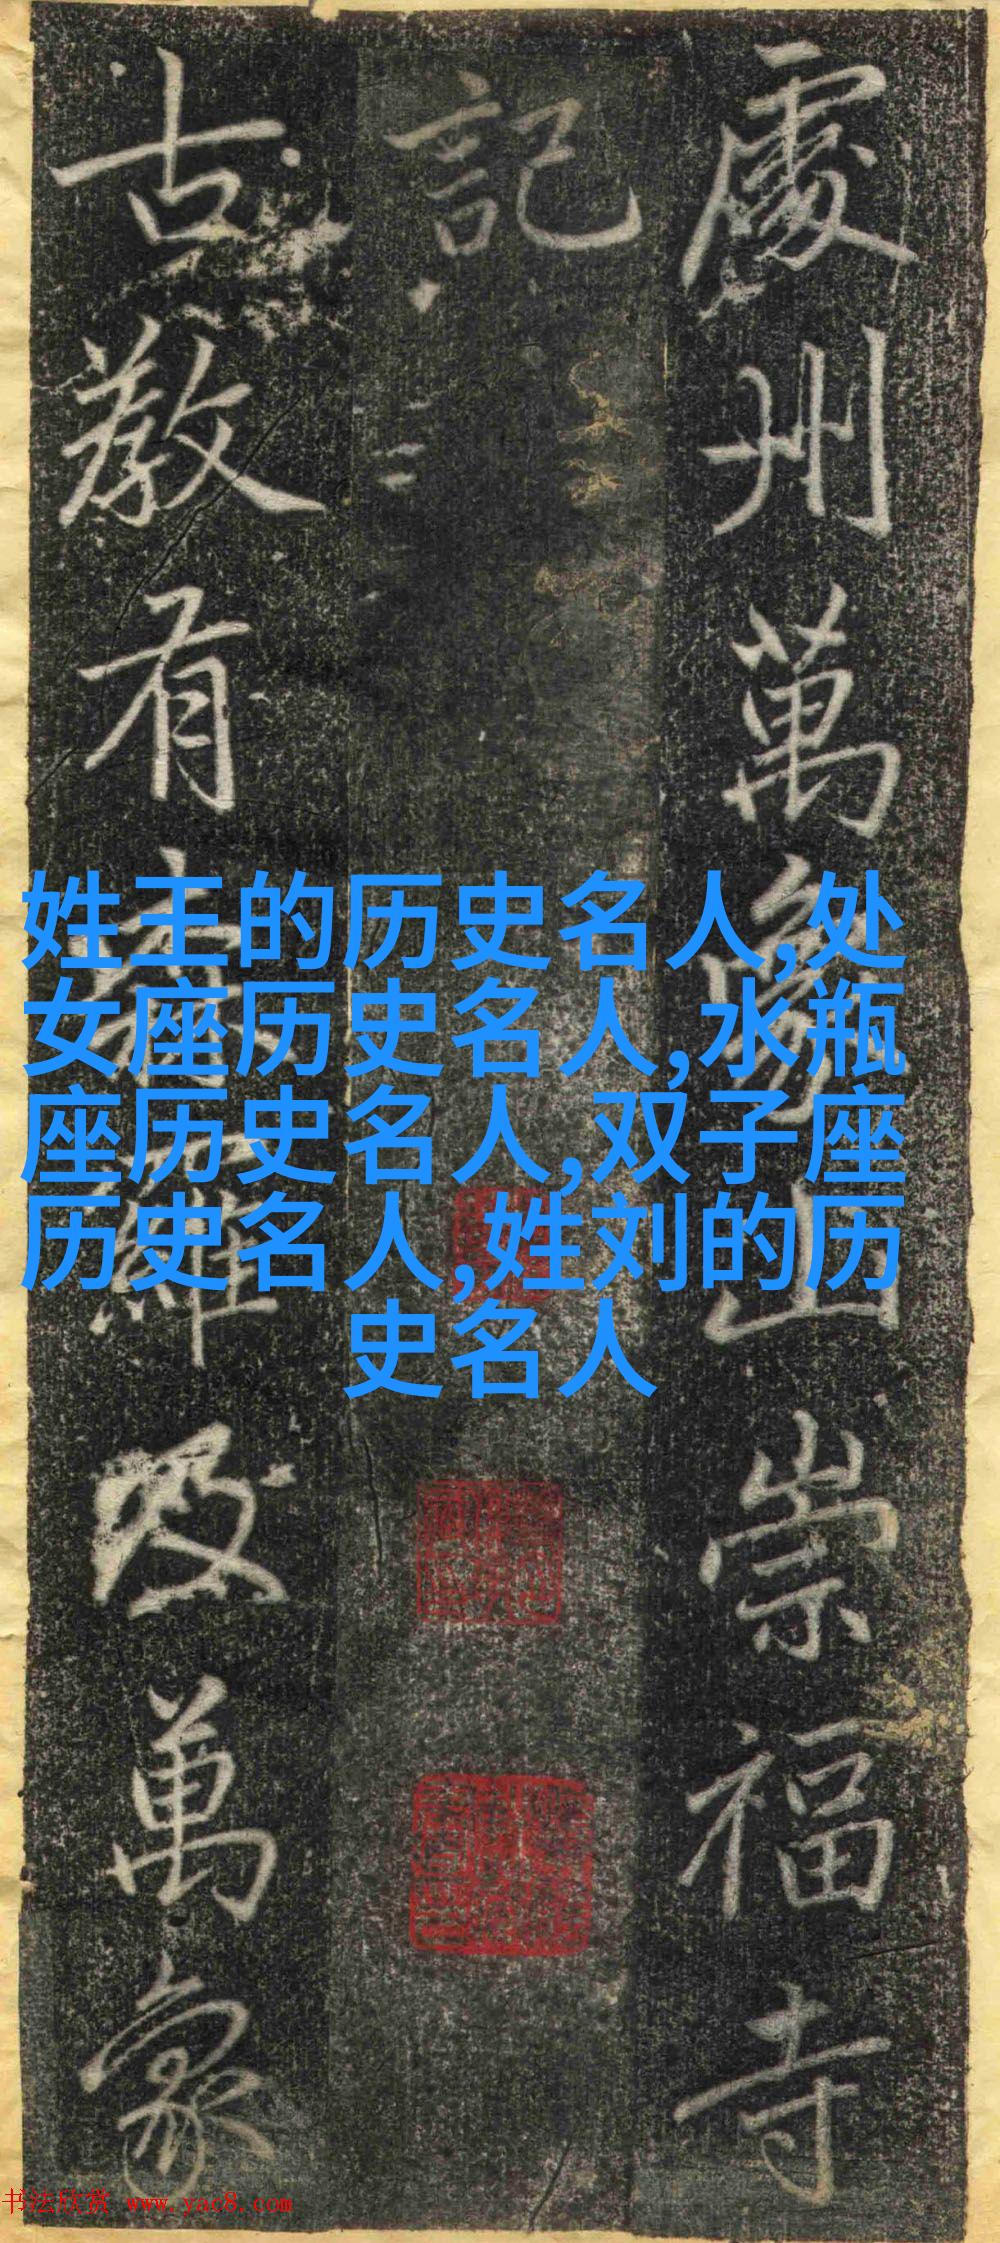 處州萬象山崇福寺
記
古教有森羅及萬象
姓王的历史名人,处
女座历史名人,水瓶
座历史名人,双子座
历史名人,姓刘的历
史名人
书法欣赏 www.yac8.com